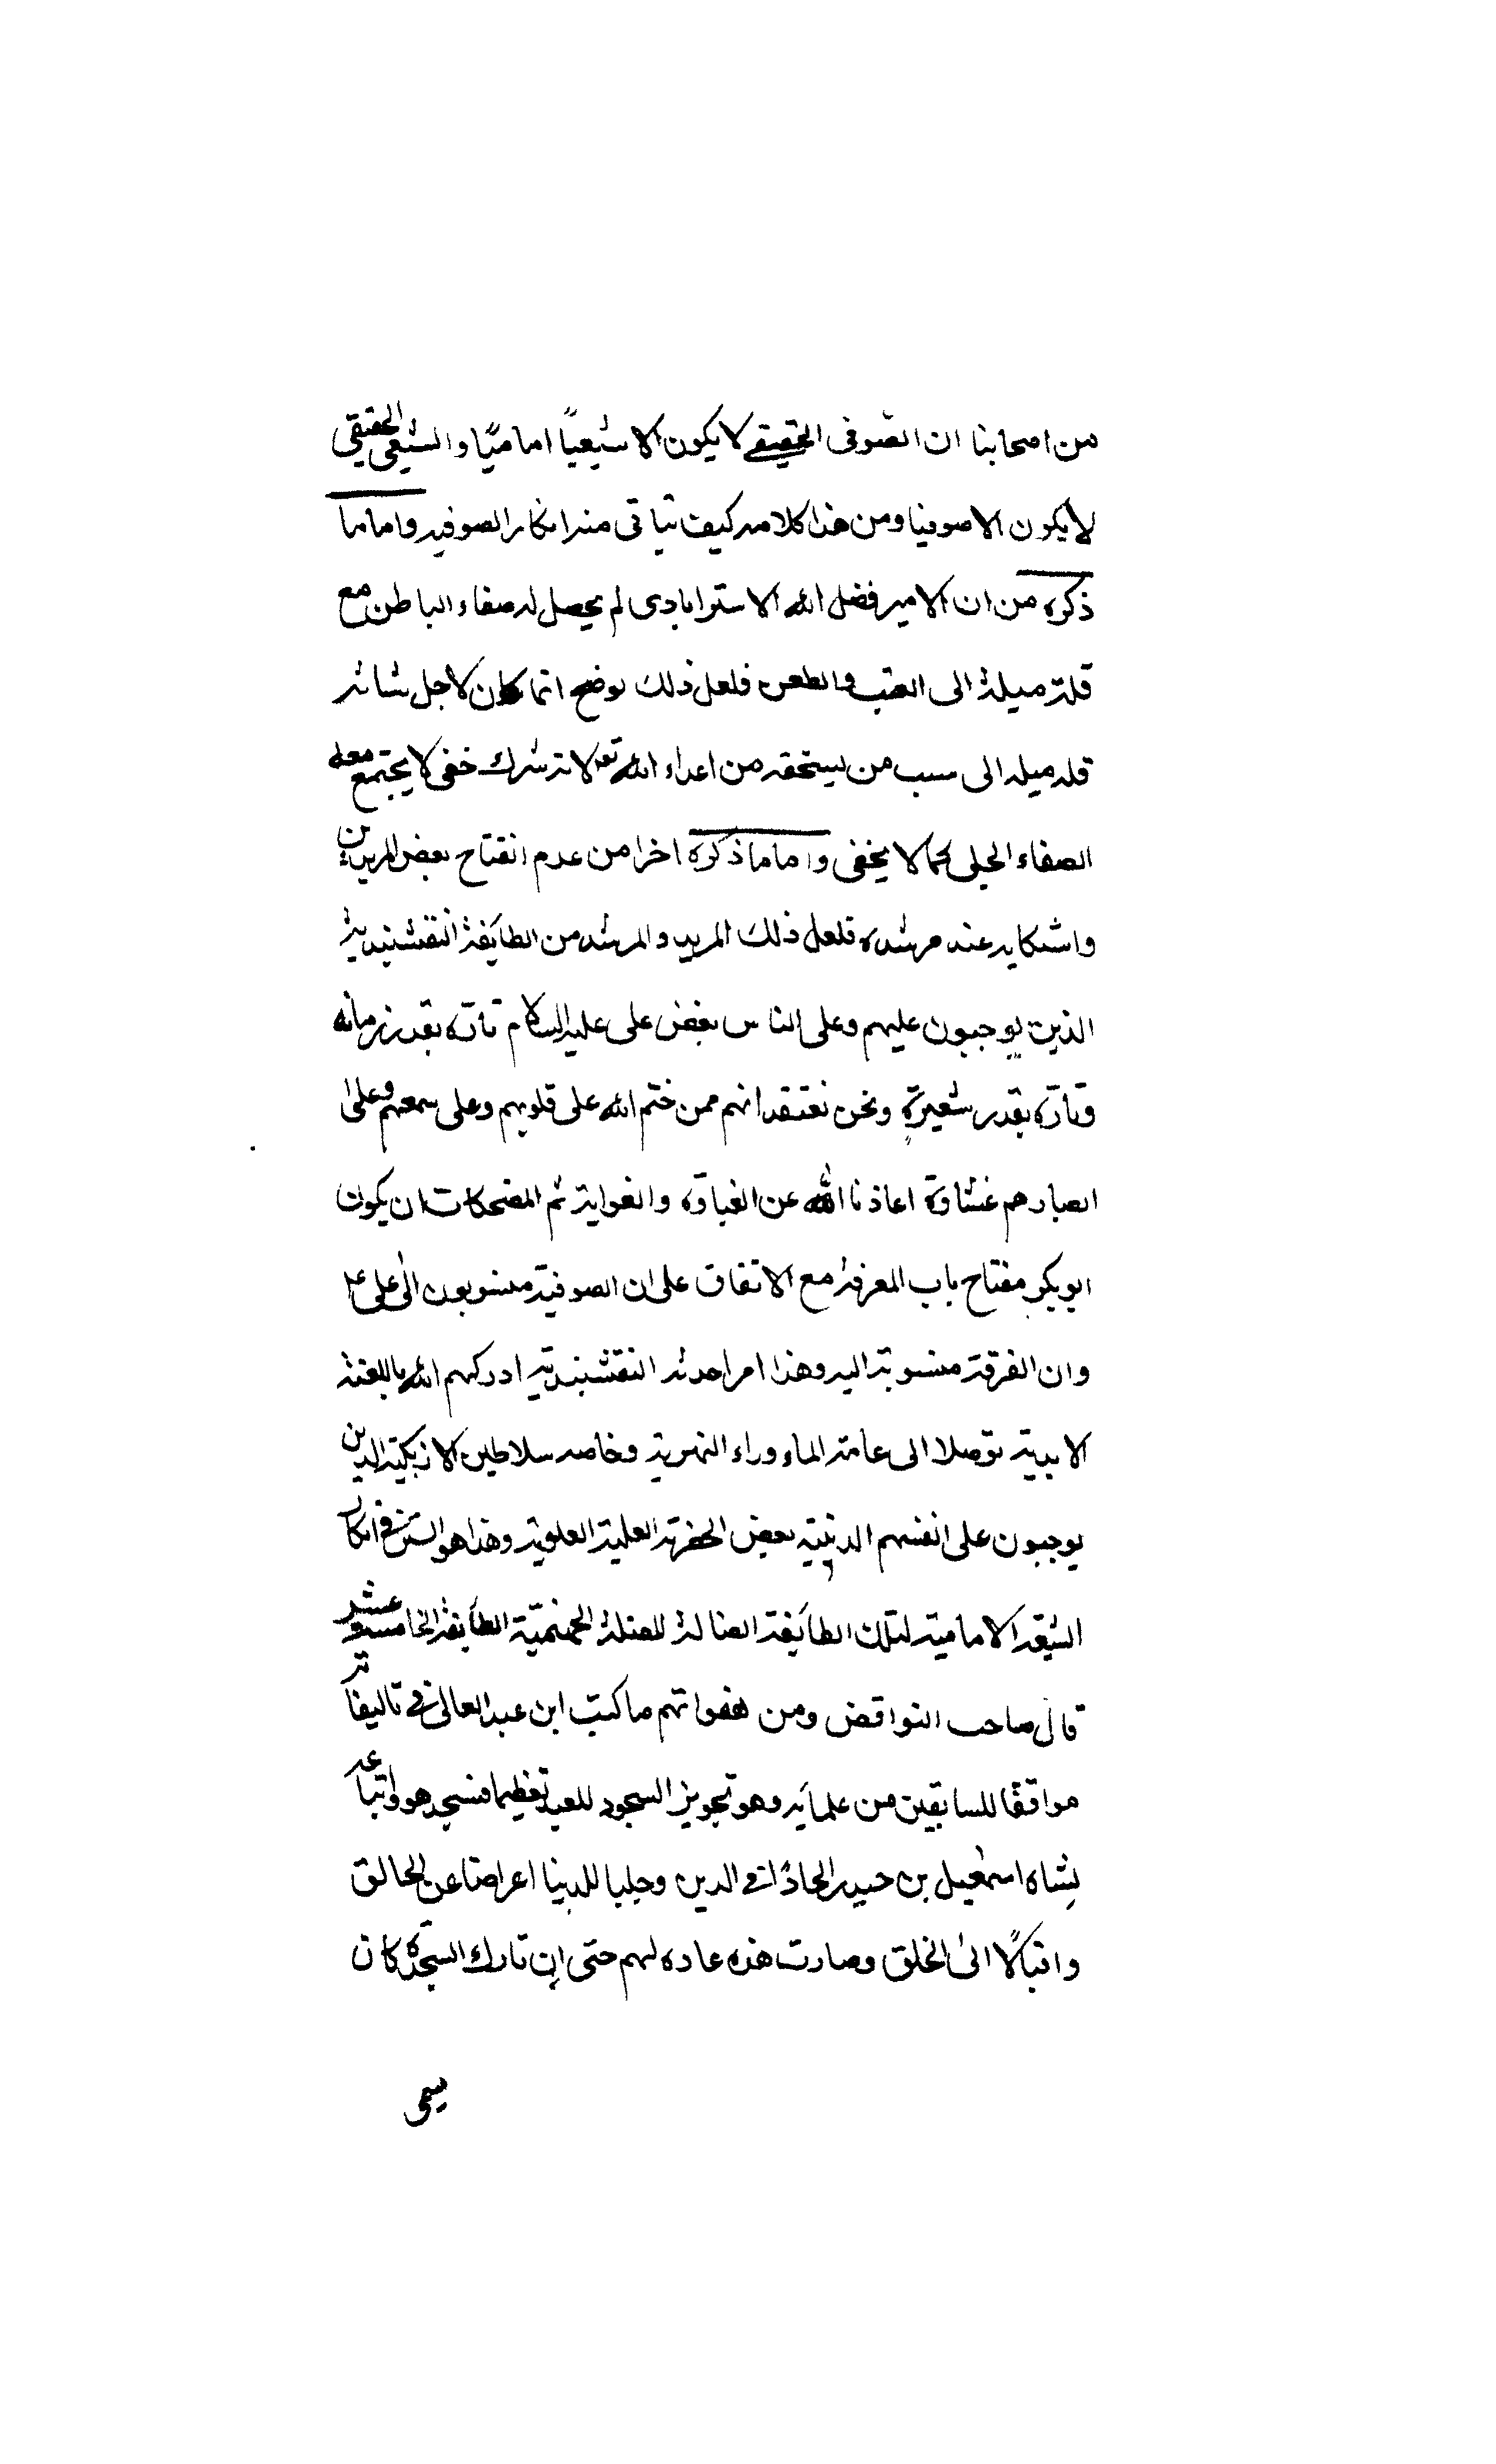 من اصحابنا ان الصّوفى الحقيقى لا يكون الا شيعيّاً اماميّا والشيعى الحقيقى
لا يكون الا صوفيا ومن هذا كلامه كيف يتاتى منه انكار الصوفيه واما ما
ذكره من ان الامير فضل الله الاسترابادى لم يحصل له صفاء الباطن مع
قلة ميله الى السب والطعن فلعل ذلك لو ضح انما كان لاجل شائبه
قله ميله الى سب من يستحقه من اعداء الله تعه لانه شرك خفى لا يجتمع معه
الصفاء الجلى كما لا يخفى واما ما ذكره اخرا من عدم انفتاح بعض المريدين
واشتكايه عند مرشده فلعل ذلك المريد والمرشد من الطائفة النقشبندية
الذين يوجبون عليهم وعلى الناس بغض على عليه السلام تارة بقدر زمانه
وتارة بقدر شعيرة ونحن نعتقد انهم ممن ختم الله على قلوبهم وعلى سمعهم وعلى
ابصارهم غشاوة اعاذنا الله عن الغباوة والغواية ثم المضحكات ان يكون
ابو بكر مفتاح باب المعرفة مع الاتفاق على ان الصوفية منسوبون الى على ع
وان الفرقة منسوبة اليه وهذا امر احدثه النقشبندية ادركهم الله باللعنة
الابدية توصلا الى عامة الماء وراء النهرية وخاصه سلاطين الازبكية الذين
يوجبون على انفسهم الدنيّة بغض الحضرة العلية العلوية وهذا هو السّر فى انكار
الشيعة الامامية لتلك الطائفة الضالة المضلة الجهنميّة الطائفة الخامسة عشر
قال صاحب النواقض ومن هفواتهم ما كتب ابن عبد العالى فى تاليفاته
موافقا للسابقين من علمائه وهو تجويز السجود للعبد تعظيما فسجد هو واتباعه
لشاه اسمعيل بن حيدر الحاد فى الدين وجلبا للدنيا اعراضا عن الخالق
واقبالاً الى الخلق وصارت هذه عاده لهم حتى ان تارك السجدة كان
يسمى